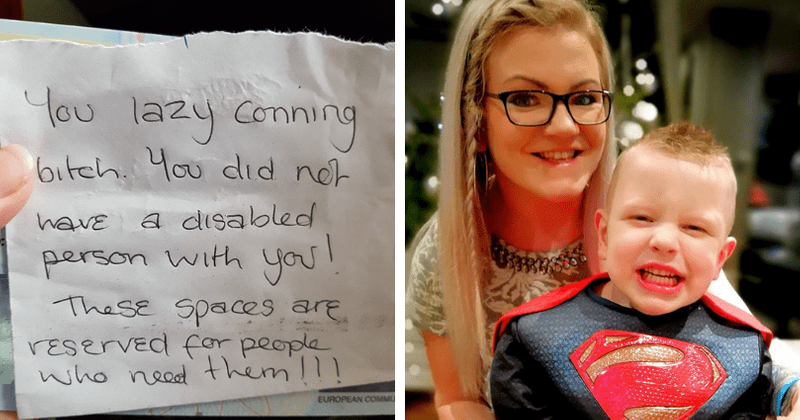 You lazy conning
bitch. You did not
have a disabled
person with you!
These spaces are
reserved for people
who need them!!!
EUROPEAN COMMU